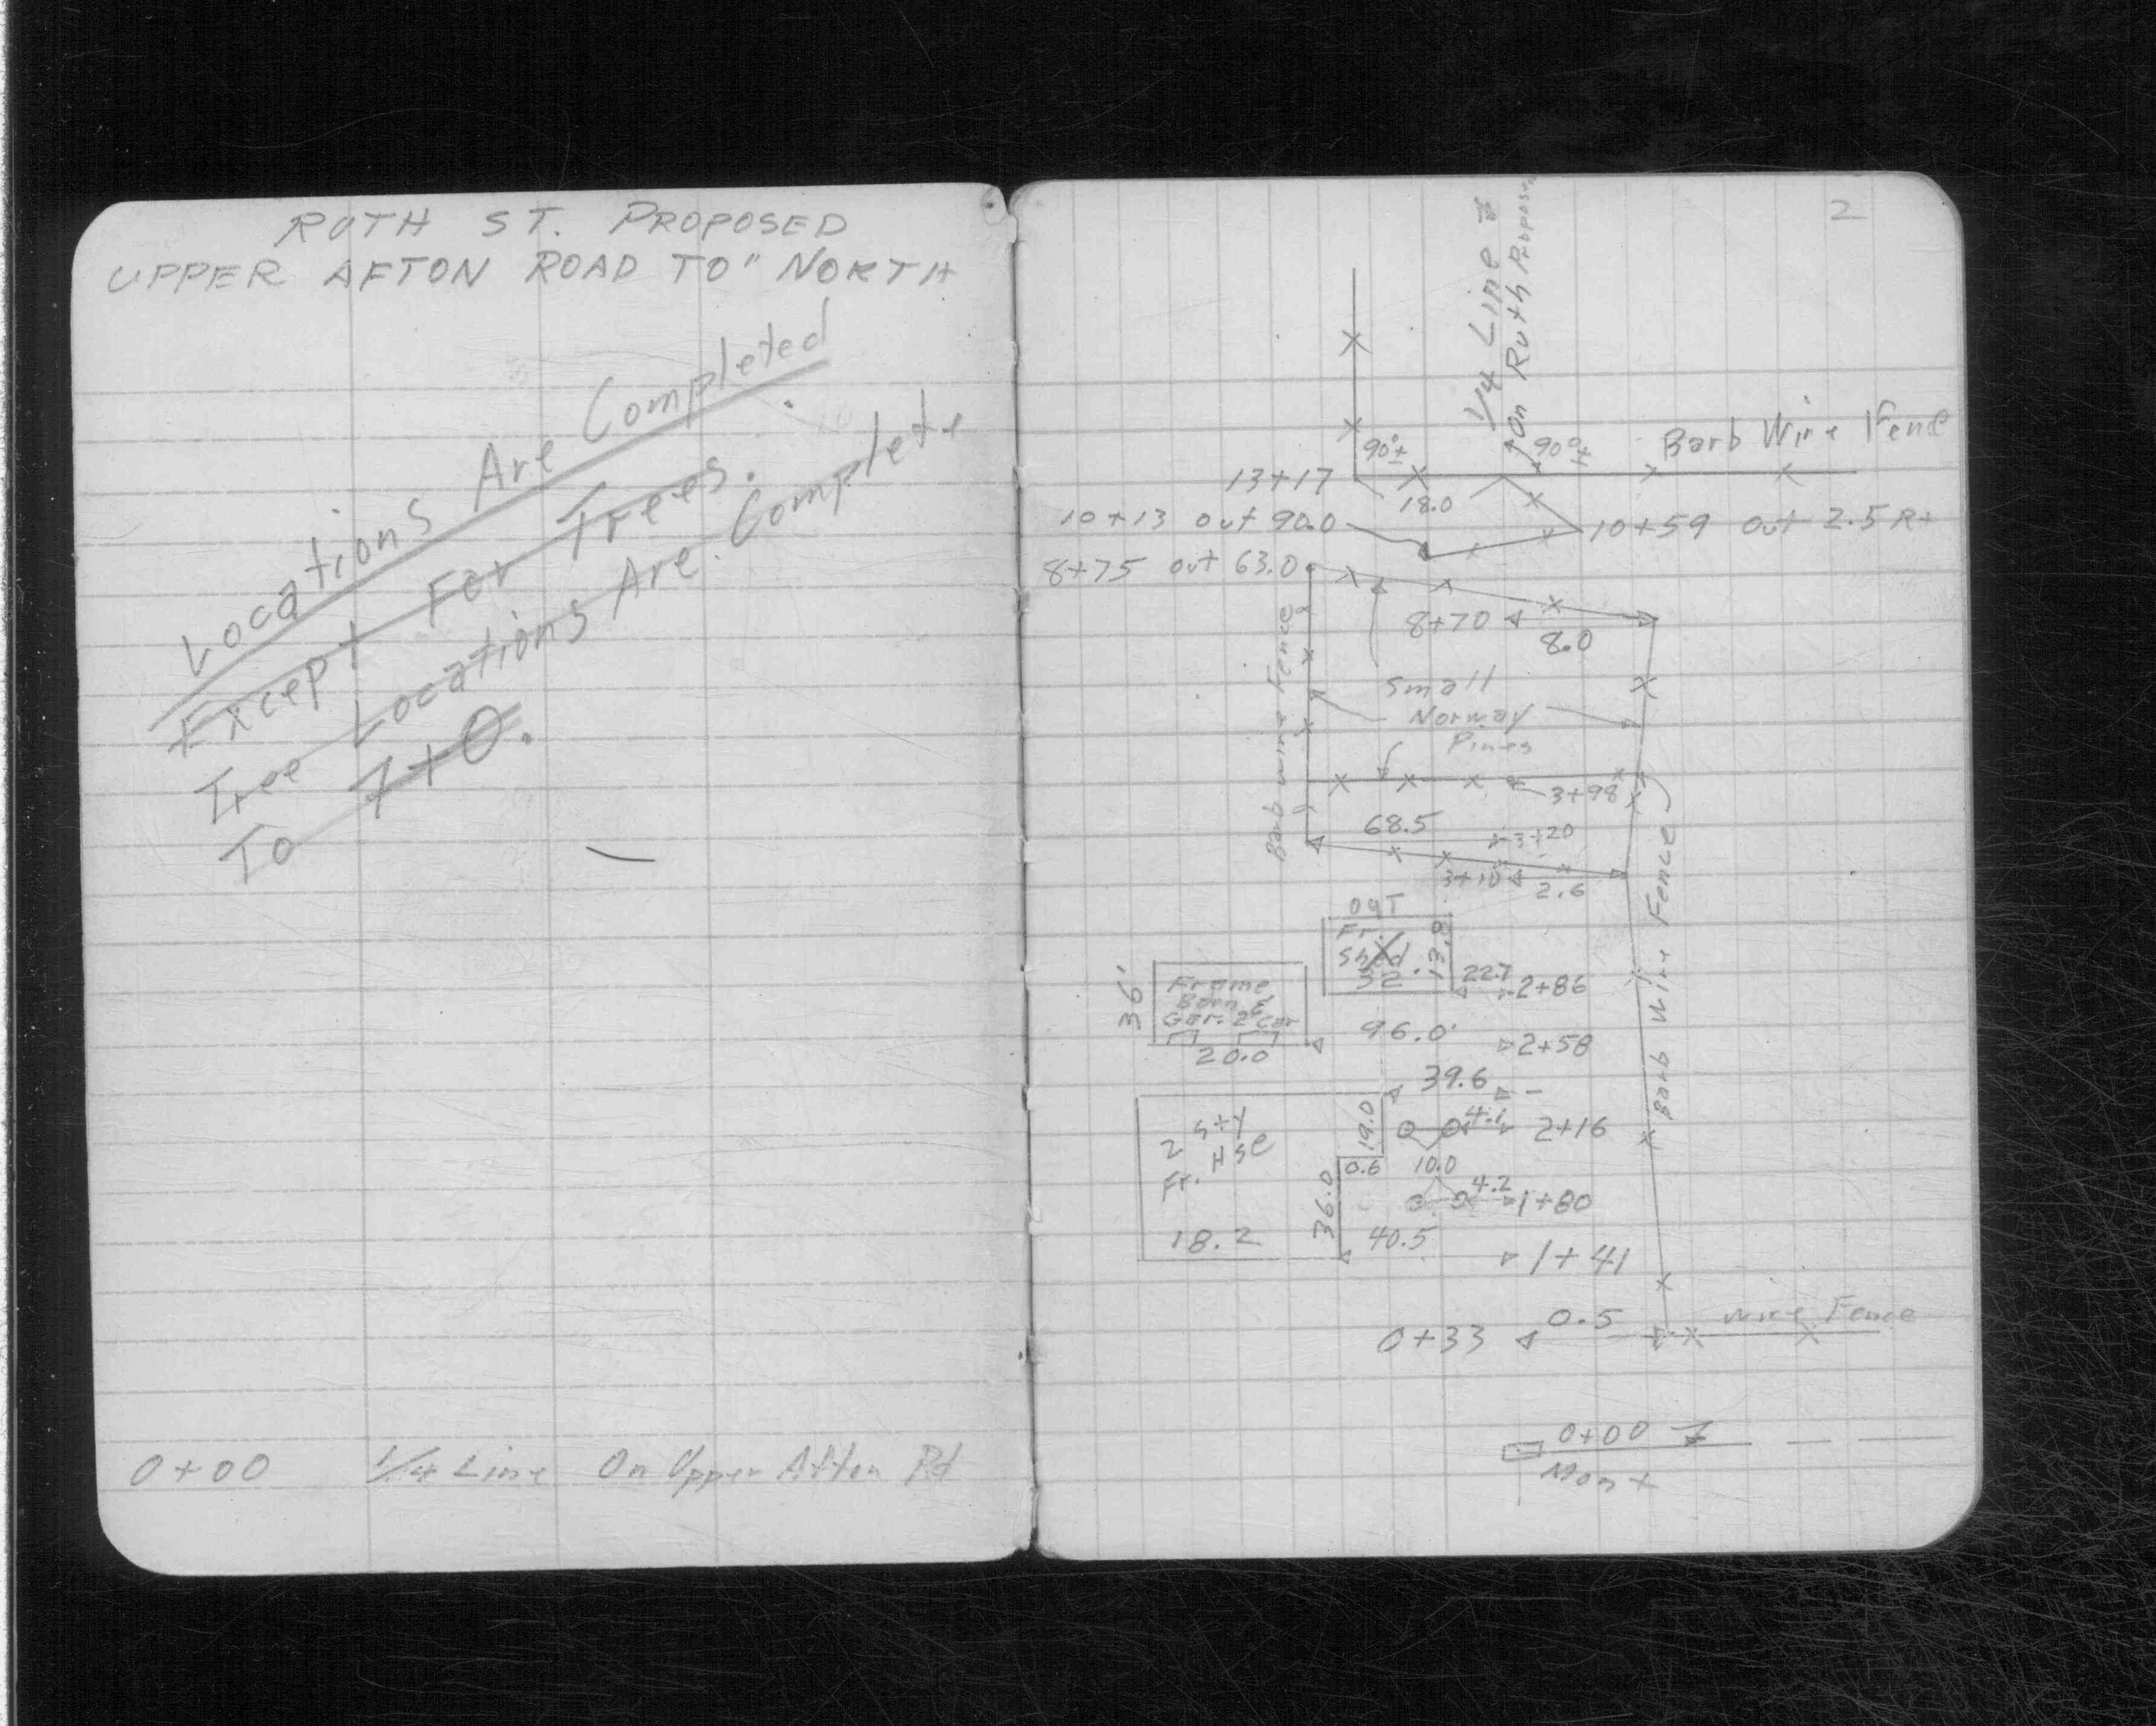 RUTH ST. PROPOSED
UPPER AFTON ROAD TO" NORTH
Locations Are Completed
Except For Trees.
Tree Locations Are Complete
To 7+0.
0+00 1/4 Line On Upper Afton Rd
2
1/4 Line
On Ruth Proposed
90°±
90°±
Barb Wire Fence
13+17
18.0
10+13 out 90.0
10+59 out 2.5 Rt
8+75 out 63.0
8+70
8.0
Barb Wire Fence
Small
Norway
Pines
3+98
68.5
3+20
3+10
2.6
Barb Wire Fence
Fr.
Shed
32.
13.8
22.7
2+86
36'
Frame
Barn &
Gar. 2 Car
20.0
96.0'
2+58
39.6
2 Sty
Fr. Hse
19.0
4.1
2+16
0.6
10.0
36.0
4.2
1+80
18.2
40.5
1+41
0+33
0.5
Wire Fence
0+00
Mont